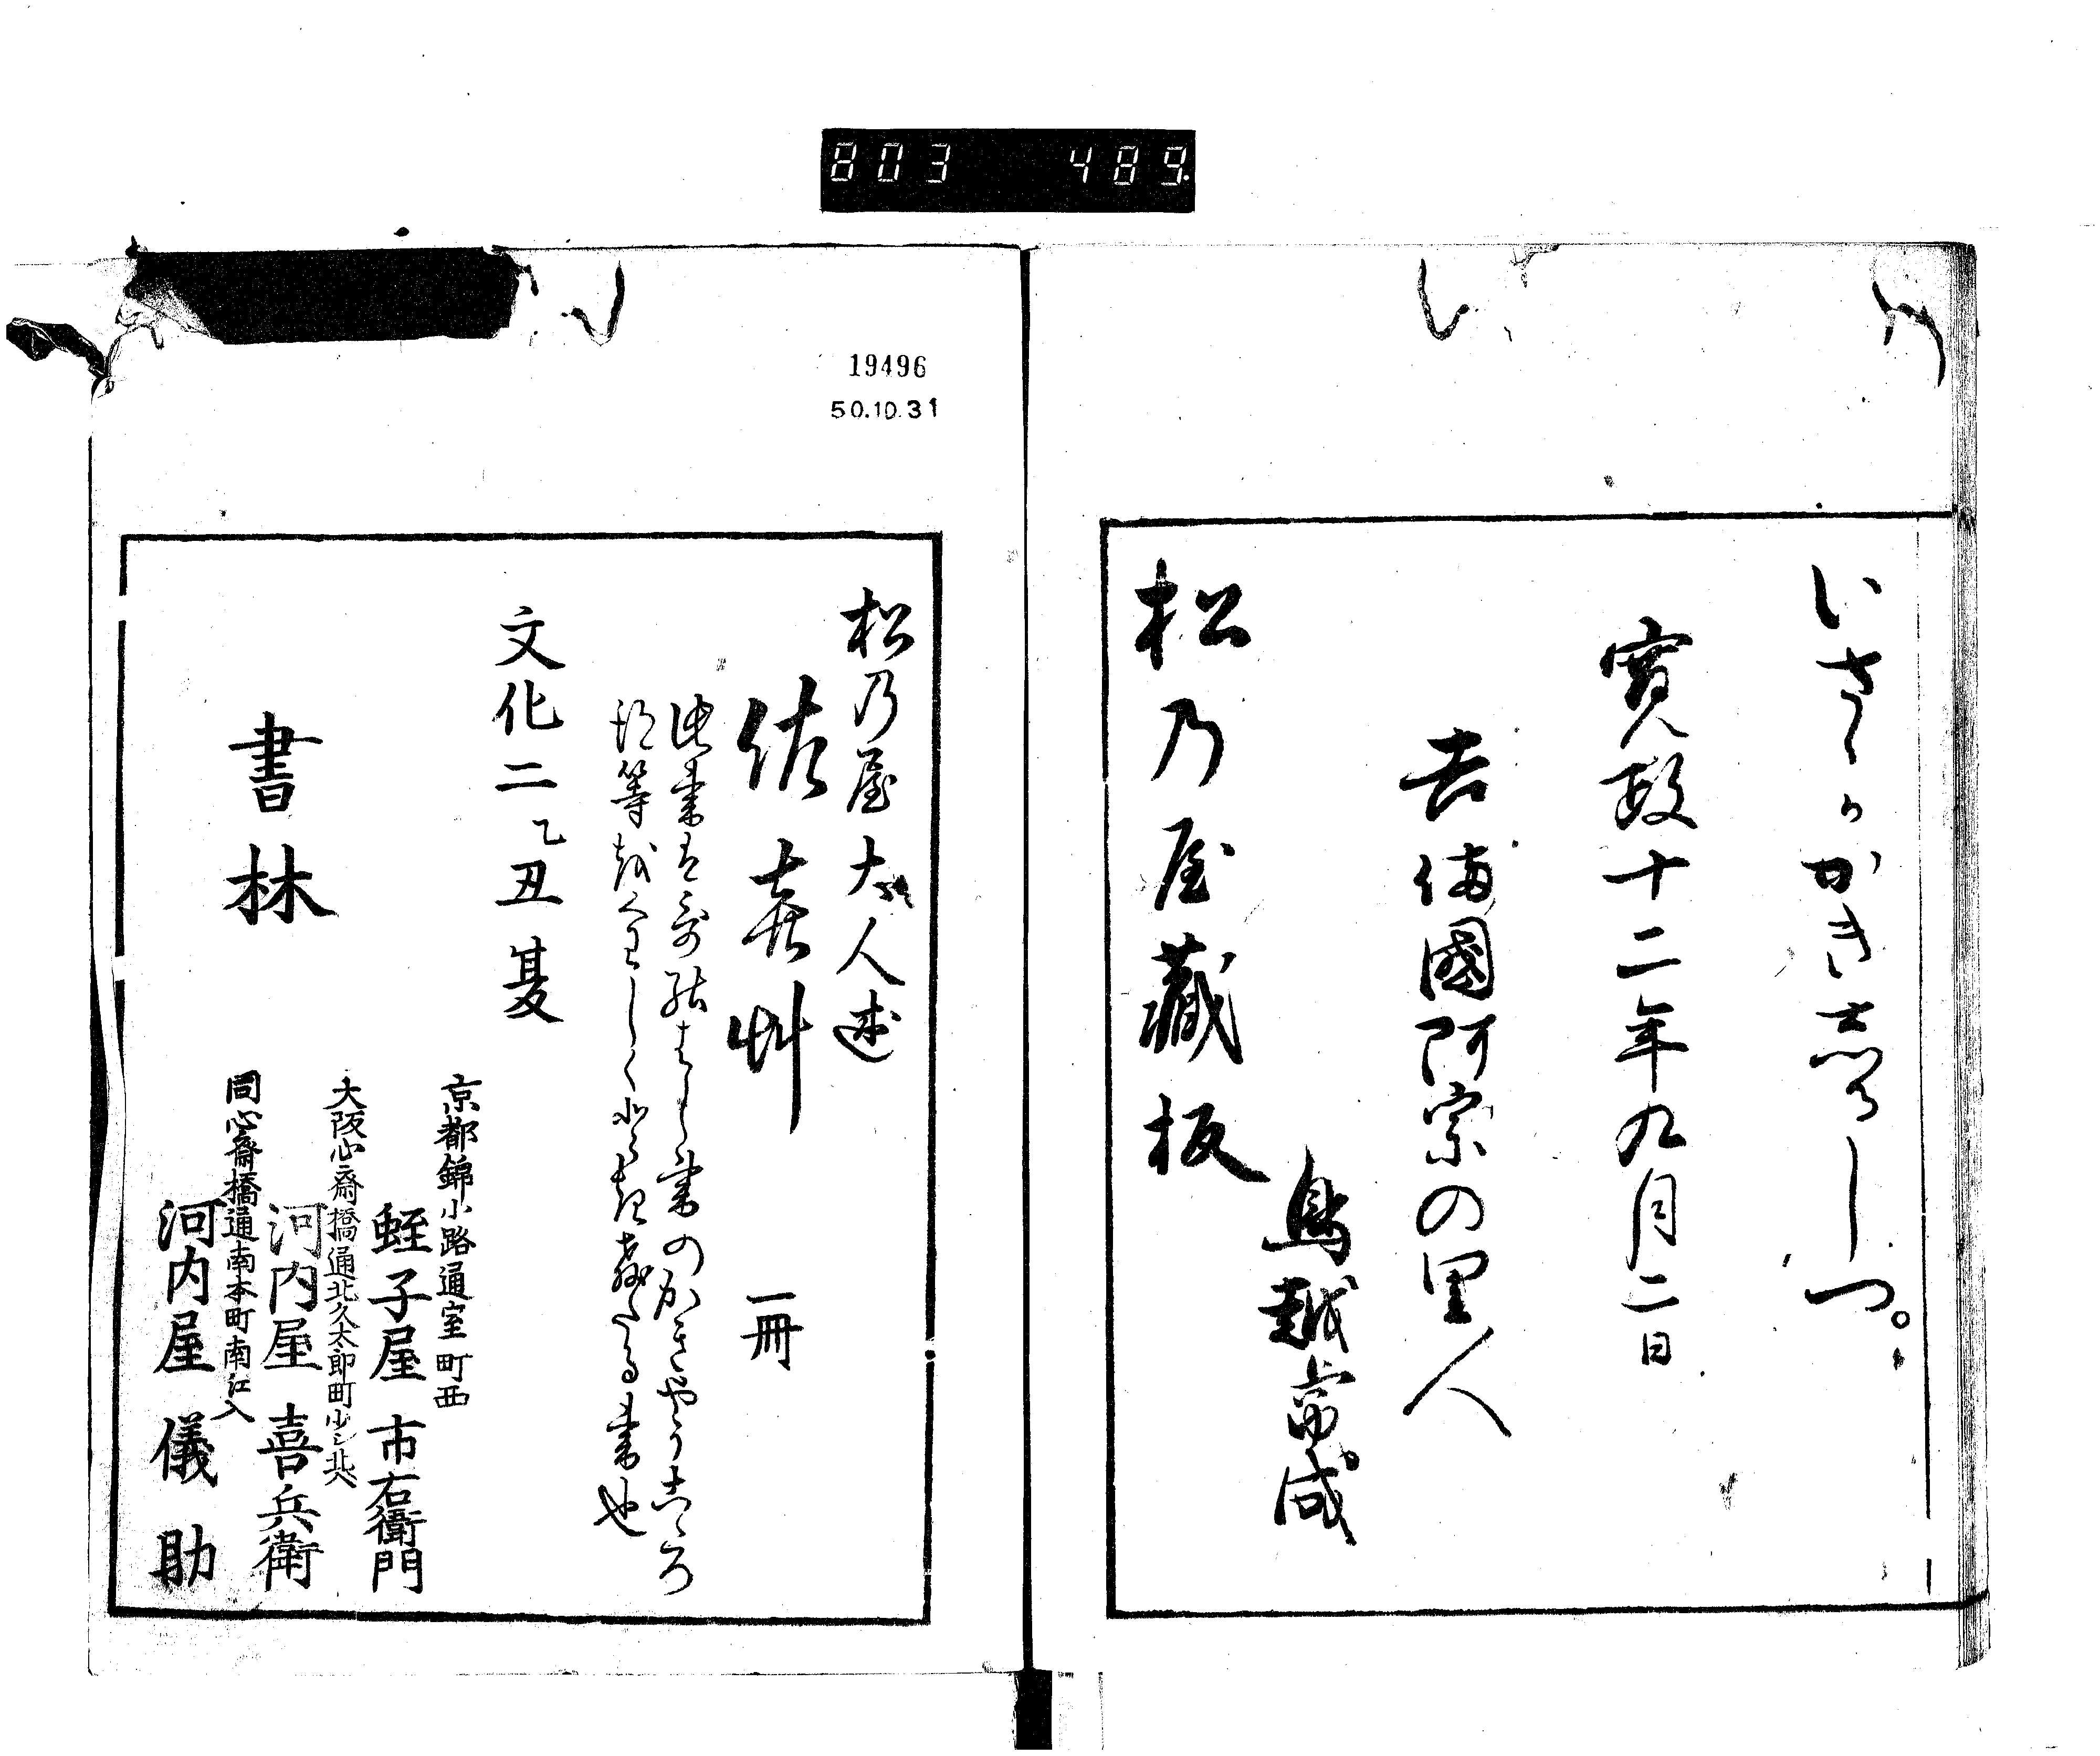 803 489
いさゝかかき志るしつ。
寛政十二年九月二日
吉備國阿宗の里人
鳥越常成
松乃屋藏板
19496
50.10.31
松乃屋大人述
佐喜艸 一冊
此書は哥
書のかきやうこゝろ
得等
書也
文化二乙丑夏
書林
京都錦小路通室町西
蛭子屋市右衛門
大阪心斎橋通北久太郎町少シ北へ
河内屋喜兵衛
同心齋橋通南本町南江入
河内屋儀助